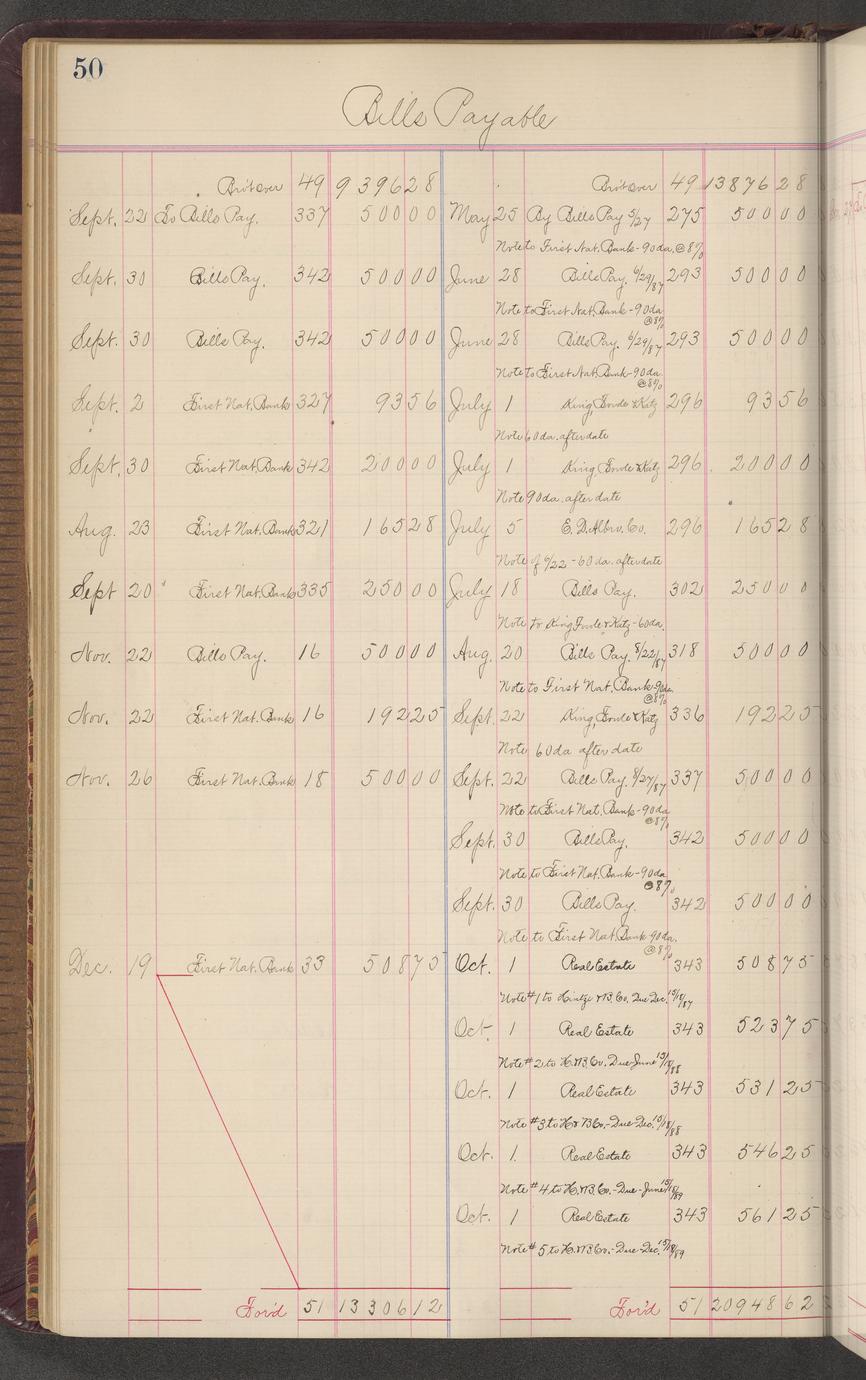 50
Bills Payable
Bro't over 49 9 396 28 Bro't over 49 13876 28
Sept. 22 To Bills Pay. 337 500 00 May 25 By Bills Pay 5/27 275 500 00
Note to First Nat. Bank - 90 da. @ 8%
Sept. 30 Bills Pay. 342 500 00 June 28 Bills Pay. 6/29/87 293 500 00
Note to First Nat. Bank - 90 da
@ 8%
Sept. 30 Bills Pay. 342 500 00 June 28 Bills Pay. 6/29/87 293 500 00
Note to First Nat. Bank - 90 da.
@ 8%
Sept. 2 First Nat. Bank 327 93 56 July 1 King, & Katz 296 93 56
Note 60 da. after date
Sept. 30 First Nat. Bank 342 200 00 July 1 King, & Katz 296 200 00
Note 90 da. after date
Aug. 23 First Nat. Bank 321 165 28 July 5 E. D. Albro. Co. 296 165 28
Note of 6/22 - 60 da. after date
Sept 20 First Nat. Bank 335 250 00 July 18 Bills Pay. 302 250 00
Note to King & Katz - 60 da.
Nov. 22 Bills Pay. 16 500 00 Aug. 20 Bills Pay. 8/22/87 318 500 00
Note to First Nat. Bank 90 da.
@ 8%
Nov. 22 First Nat. Bank 16 192 25 Sept. 22 King, & Katz 336 192 25
Note 60 da after date
Nov. 26 First Nat. Bank 18 500 00 Sept. 22 Bills Pay. 337 500 00
Note to First Nat. Bank - 90 da
@ 8%
Sept. 30 Bills Pay. 342 500 00
Note to First Nat. Bank - 90 da
@ 8%
Sept. 30 Bills Pay. 342 500 00
Note to First Nat. Bank 90 da.
@ 8%
Dec. 19 First Nat. Bank 33 508 75 Oct. 1 Real Estate 343 508 75
Note #1 to Co. Due Dec. 15/18/87
Oct. 1 Real Estate 343 523 75
Note #2 to H. & B. Co. Due June 15/18/88
Oct. 1 Real Estate 343 531 25
Note #3 to H & B Co. - Due Dec. 15/18/88
Oct. 1. Real Estate 343 546 25
Note #4 to H. & B. Co. - Due - June 15/18/89
Oct. 1 Real Estate 343 561 25
Note #5 to H. & B Co. - Due - Dec. 15/18/89
For'd 51 13306 12 For'd 51 20948 62